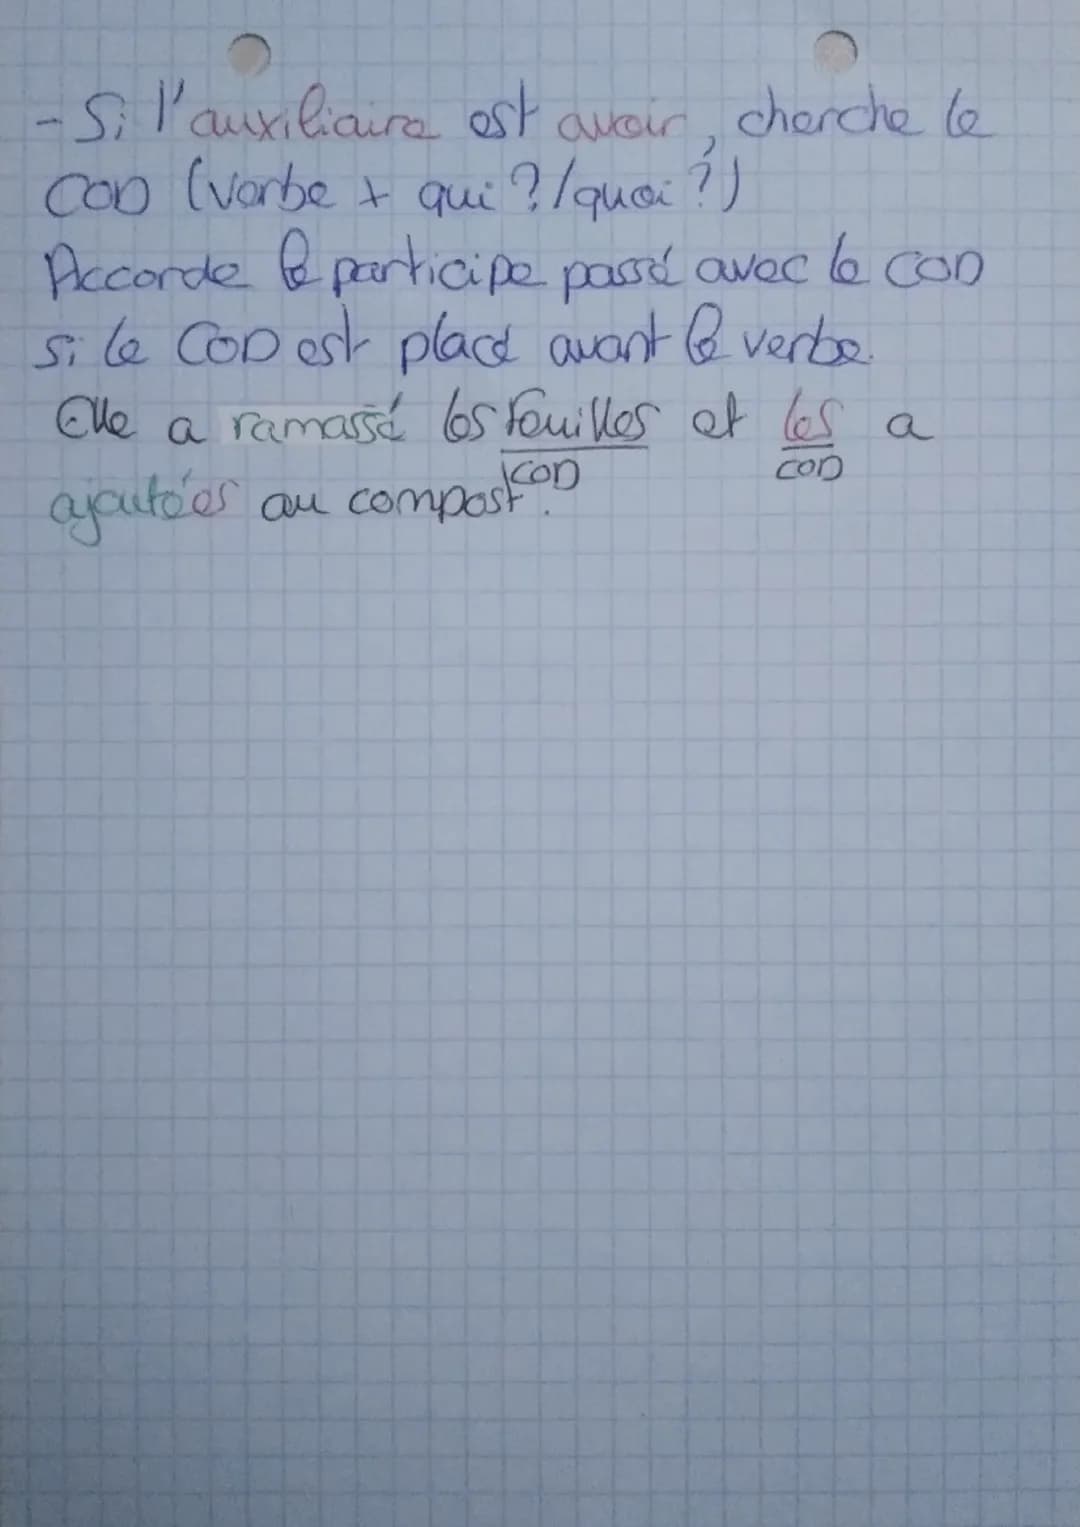 - Si l'auxiliaire est avoir, cherche le
COD (verbe + qui ?/quoi ?)
Accorde le participe passé avec le COD
si le COD est placé avant le verbe.
Elle a ramassé les feuilles et les a
COD COD
ajoutées au compost.